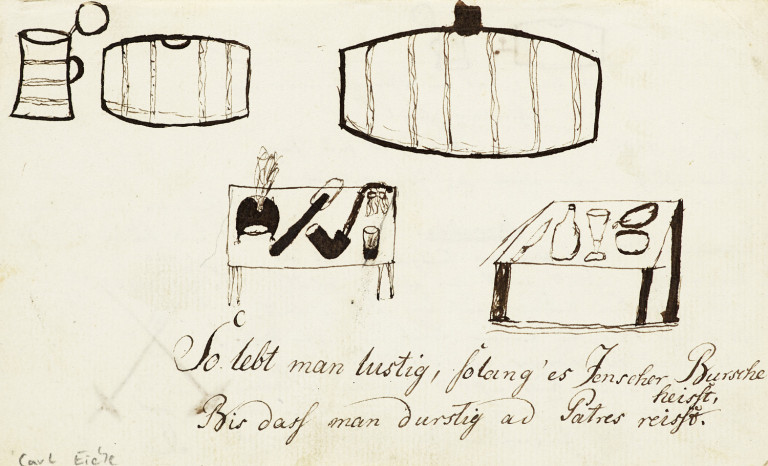 So lebt man lustig, solang' es Jenscher Bursche
heisst,
Bis dass man durstig ad Patres reisst.
Carl Eiche